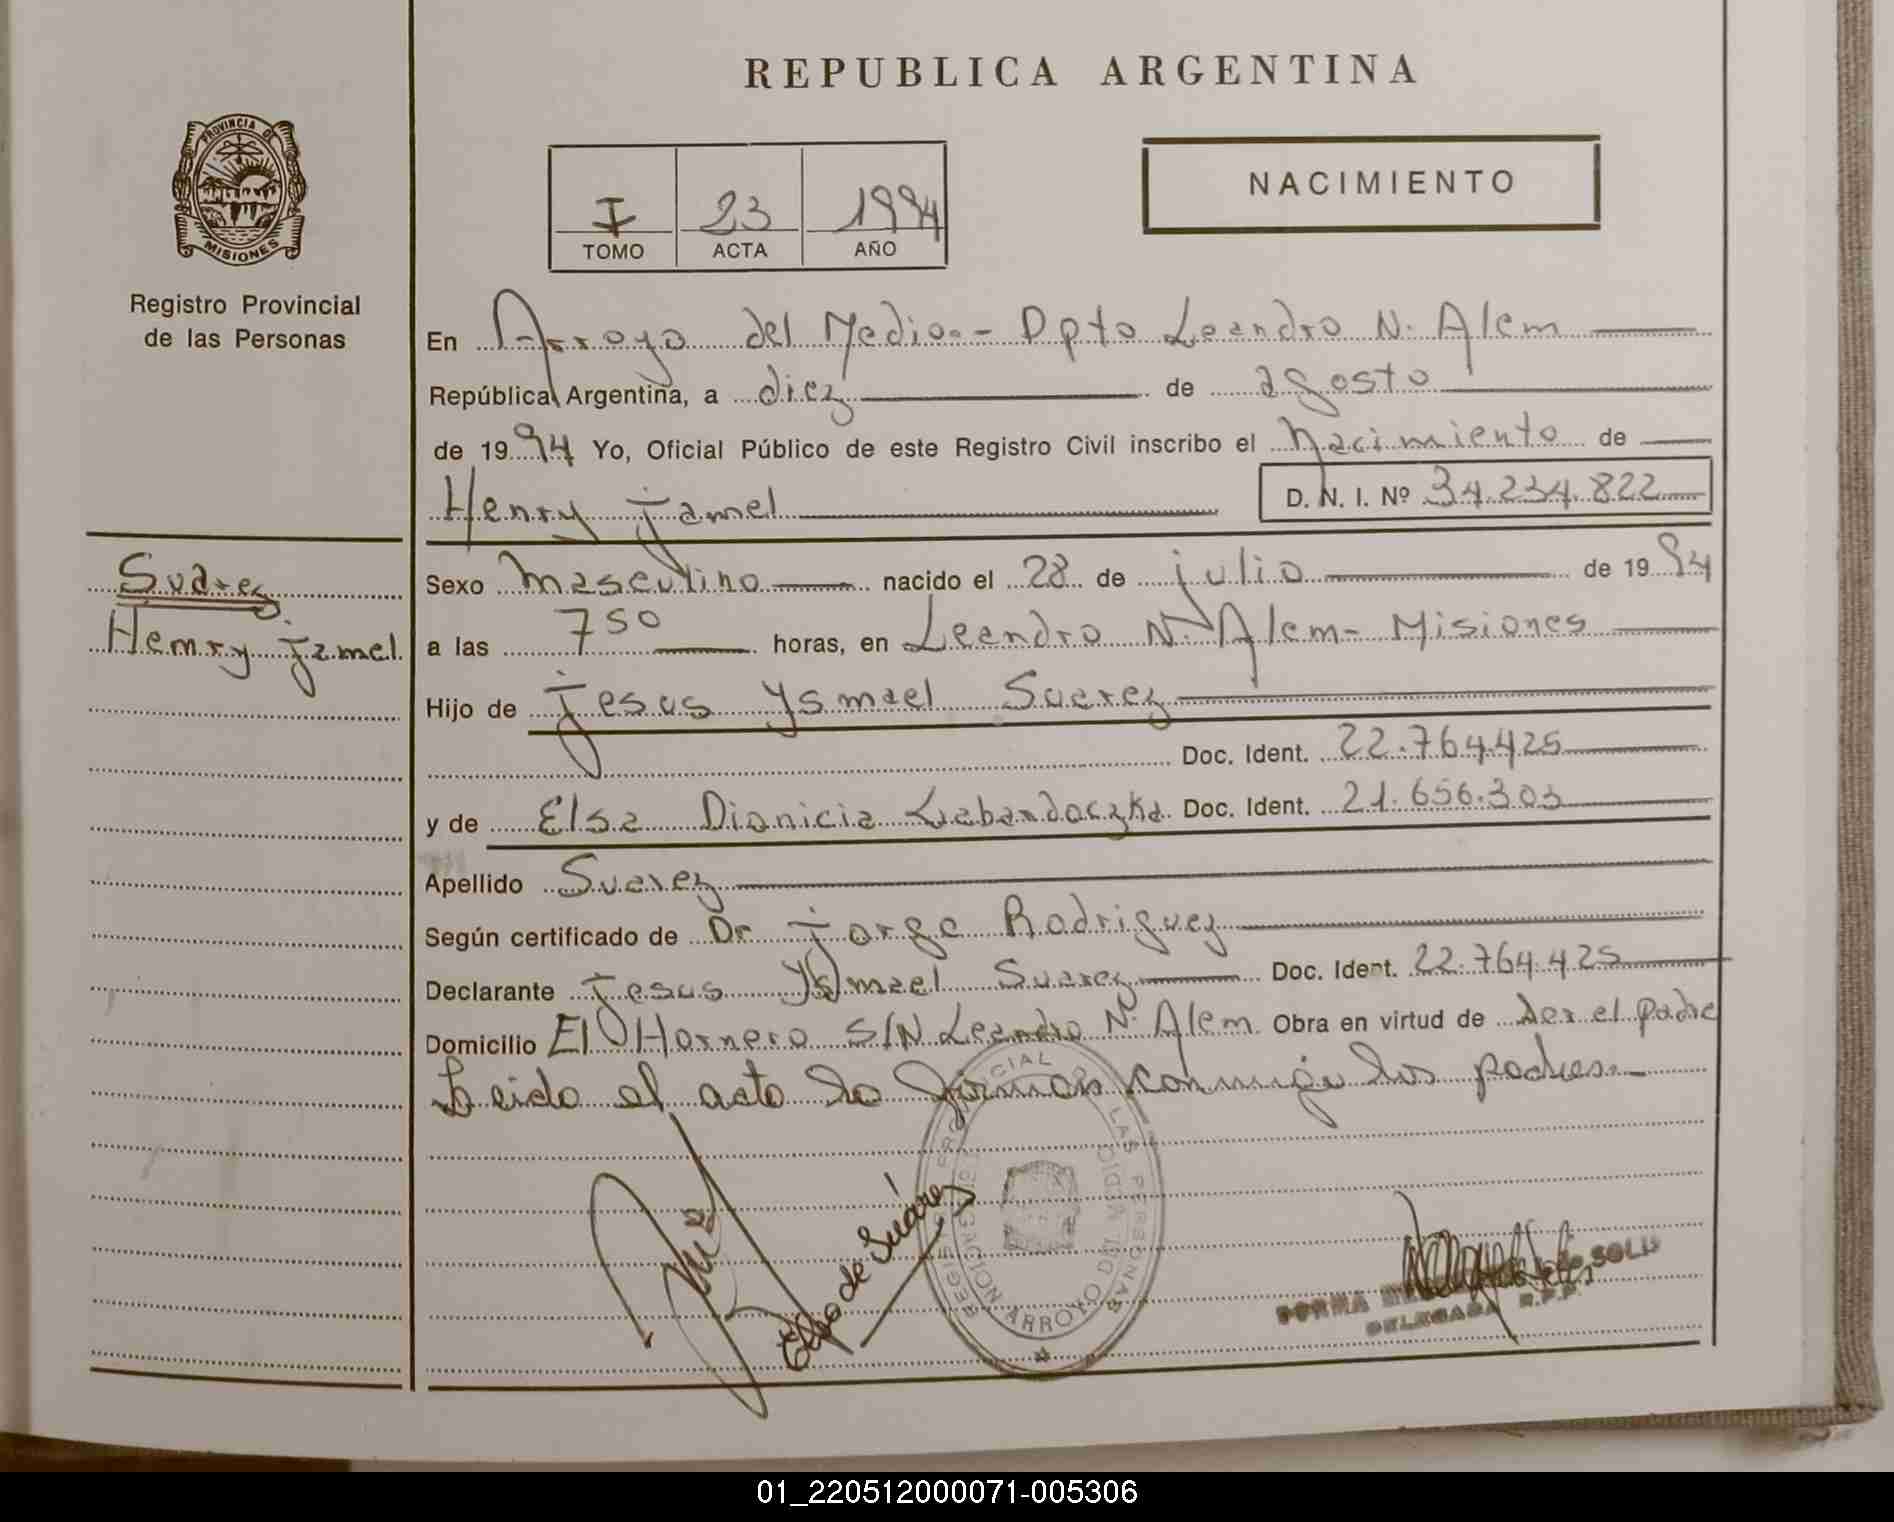 REPUBLICA ARGENTINA
PROVINCIA DE
MISIONES
Registro Provincial
de las Personas
I 23 1994
TOMO ACTA AÑO
NACIMIENTO
En Arroyo del Medio.- Dpto Leandro N. Alem
República Argentina, a diez de agosto
de 1994 Yo, Oficial Público de este Registro Civil inscribo el Nacimiento de
Henry Jamel D. N. I. Nº 34.234.822
Suarez
Henry Jamel
Sexo Masculino nacido el 28 de julio de 1994
a las 750 horas, en Leandro N. Alem- Misiones
Hijo de Jesus Ysmael Suarez
Doc. Ident. 22.764.425
y de Elsa Dionicia Doc. Ident. 21.656.303
Apellido Suarez
Según certificado de Dr Jorge Rodriguez
Declarante Jesus Ysmael Suarez Doc. Ident. 22.764.425
Domicilio El Hornero S/N Leandro N. Alem Obra en virtud de ser el padre
Leida el acta la firman conmigo los padres.-
Elsa de Suárez
REGISTRO PROVINCIAL DE LAS PERSONAS
DELEGACION ARROYO DEL MEDIO
DELEGADA R.P.P.
01_220512000071-005306